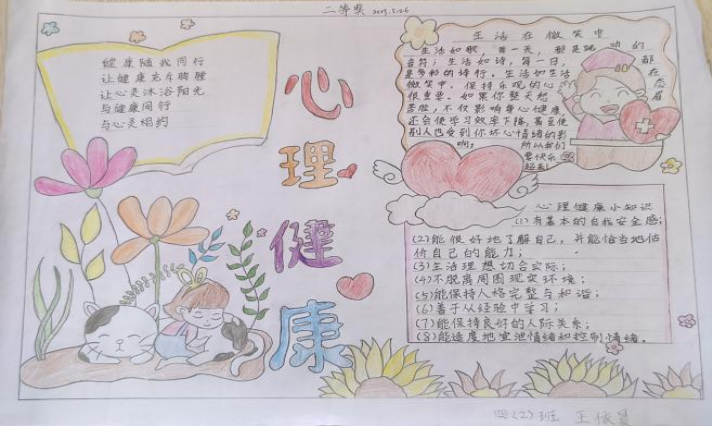 二等奖 2023.5.26
健康随我同行
让健康充斥胸膛
让心灵沐浴阳光
与健康同行
与心灵相约
心理健康
生活在微笑中
生活如歌 每一天，都是跳动的
音符；生活如诗，每一日，都
是多彩的诗行。生活如生活在
微笑中，保持乐观的心态
很重要。如果你整天愁眉
苦脸，不仅影响身心健康
还会使学习效率下降，甚至使
别人也受到你坏心情绪的影
响。 所以我们
要快乐
心理健康小知识
(1)有基本的自我安全感；
(2)能很好地了解自己，并能恰当地估
价自己的能力；
(3)生活理想切合实际；
(4)不脱离周围现实环境；
(5)能保持人格完整与和谐；
(6)善于从经验中学习；
(7)能保持良好的人际关系；
(8)能适度地宣泄情绪和控制情绪。
四(2)班 王